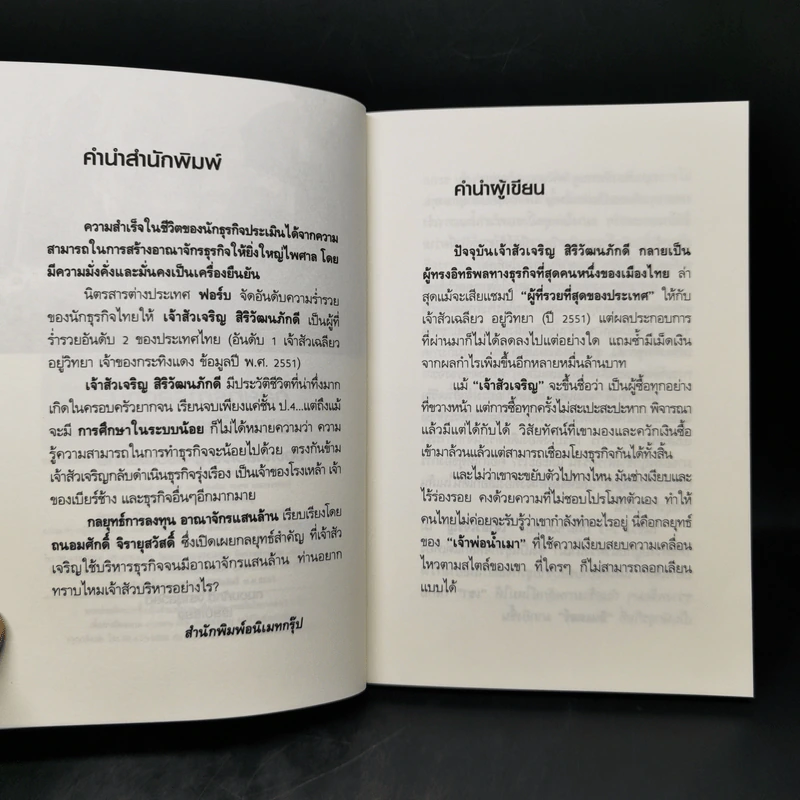 คำนำสำนักพิมพ์
ความสำเร็จในชีวิตของนักธุรกิจประเมินได้จากความ
สามารถในการสร้างอาณาจักรธุรกิจให้ยิ่งใหญ่ไพศาล โดย
มีความมั่งคั่งและมั่นคงเป็นเครื่องยืนยัน
นิตรสารต่างประเทศ ฟอร์บ จัดอันดับความร่ำรวย
ของนักธุรกิจไทยให้ เจ้าสัวเจริญ สิริวัฒนภักดี เป็นผู้ที่
ร่ำรวยอันดับ 2 ของประเทศไทย (อันดับ 1 เจ้าสัวเฉลียว
อยู่วิทยา เจ้าของกระทิงแดง ข้อมูลปี พ.ศ. 2551)
เจ้าสัวเจริญ สิริวัฒนภักดี มีประวัติชีวิตที่น่าทึ่งมาก
เกิดในครอบครัวยากจน เรียนจบเพียงแค่ชั้น ป.4...แต่ถึงแม้
จะมี การศึกษาในระบบน้อย ก็ไม่ได้หมายความว่า ความ
รู้ความสามารถในการทำธุรกิจจะน้อยไปด้วย ตรงกันข้าม
เจ้าสัวเจริญกลับดำเนินธุรกิจรุ่งเรือง เป็นเจ้าของโรงเหล้า เจ้า
ของเบียร์ช้าง และธุรกิจอื่นๆอีกมากมาย
กลยุทธ์การลงทุน อาณาจักรแสนล้าน เรียบเรียงโดย
ถนอมศักดิ์ จิรายุสวัสดิ์ ซึ่งเปิดเผยกลยุทธ์สำคัญ ที่เจ้าสัว
เจริญใช้บริหารธุรกิจจนมีอาณาจักรแสนล้าน ท่านอยาก
ทราบไหมเจ้าสัวบริหารอย่างไร?
สำนักพิมพ์อนิเมทกรุ๊ป
คำนำผู้เขียน
ปัจจุบันเจ้าสัวเจริญ สิริวัฒนภักดี กลายเป็น
ผู้ทรงอิทธิพลทางธุรกิจที่สุดคนหนึ่งของเมืองไทย ล่า
สุดแม้จะเสียแชมป์ "ผู้ที่รวยที่สุดของประเทศ" ให้กับ
เจ้าสัวเฉลียว อยู่วิทยา (ปี 2551) แต่ผลประกอบการ
ที่ผ่านมาก็ไม่ได้ลดลงไปแต่อย่างใด แถมซ้ำมีเม็ดเงิน
จากผลกำไรเพิ่มขึ้นอีกหลายหมื่นล้านบาท
แม้ "เจ้าสัวเจริญ" จะขึ้นชื่อว่า เป็นผู้ซื้อทุกอย่าง
ที่ขวางหน้า แต่การซื้อทุกครั้งไม่สะเปะสะปะหาก พิจารณา
แล้วมีแต่ได้กับได้ วิสัยทัศน์ที่เขามองและควักเงินซื้อ
เข้ามาล้วนแล้วแต่สามารถเชื่อมโยงธุรกิจกันได้ทั้งสิ้น
และไม่ว่าเขาจะขยับตัวไปทางไหน มันช่างเงียบและ
ไร้ร่องรอย คงด้วยความที่ไม่ชอบโปรโมทตัวเอง ทำให้
คนไทยไม่ค่อยจะรับรู้ว่าเขากำลังทำอะไรอยู่ นี่คือกลยุทธ์
ของ "เจ้าพ่อน้ำเมา" ที่ใช้ความเงียบสยบความเคลื่อน
ไหวตามสไตล์ของเขา ที่ใครๆ ก็ไม่สามารถลอกเลียน
แบบได้